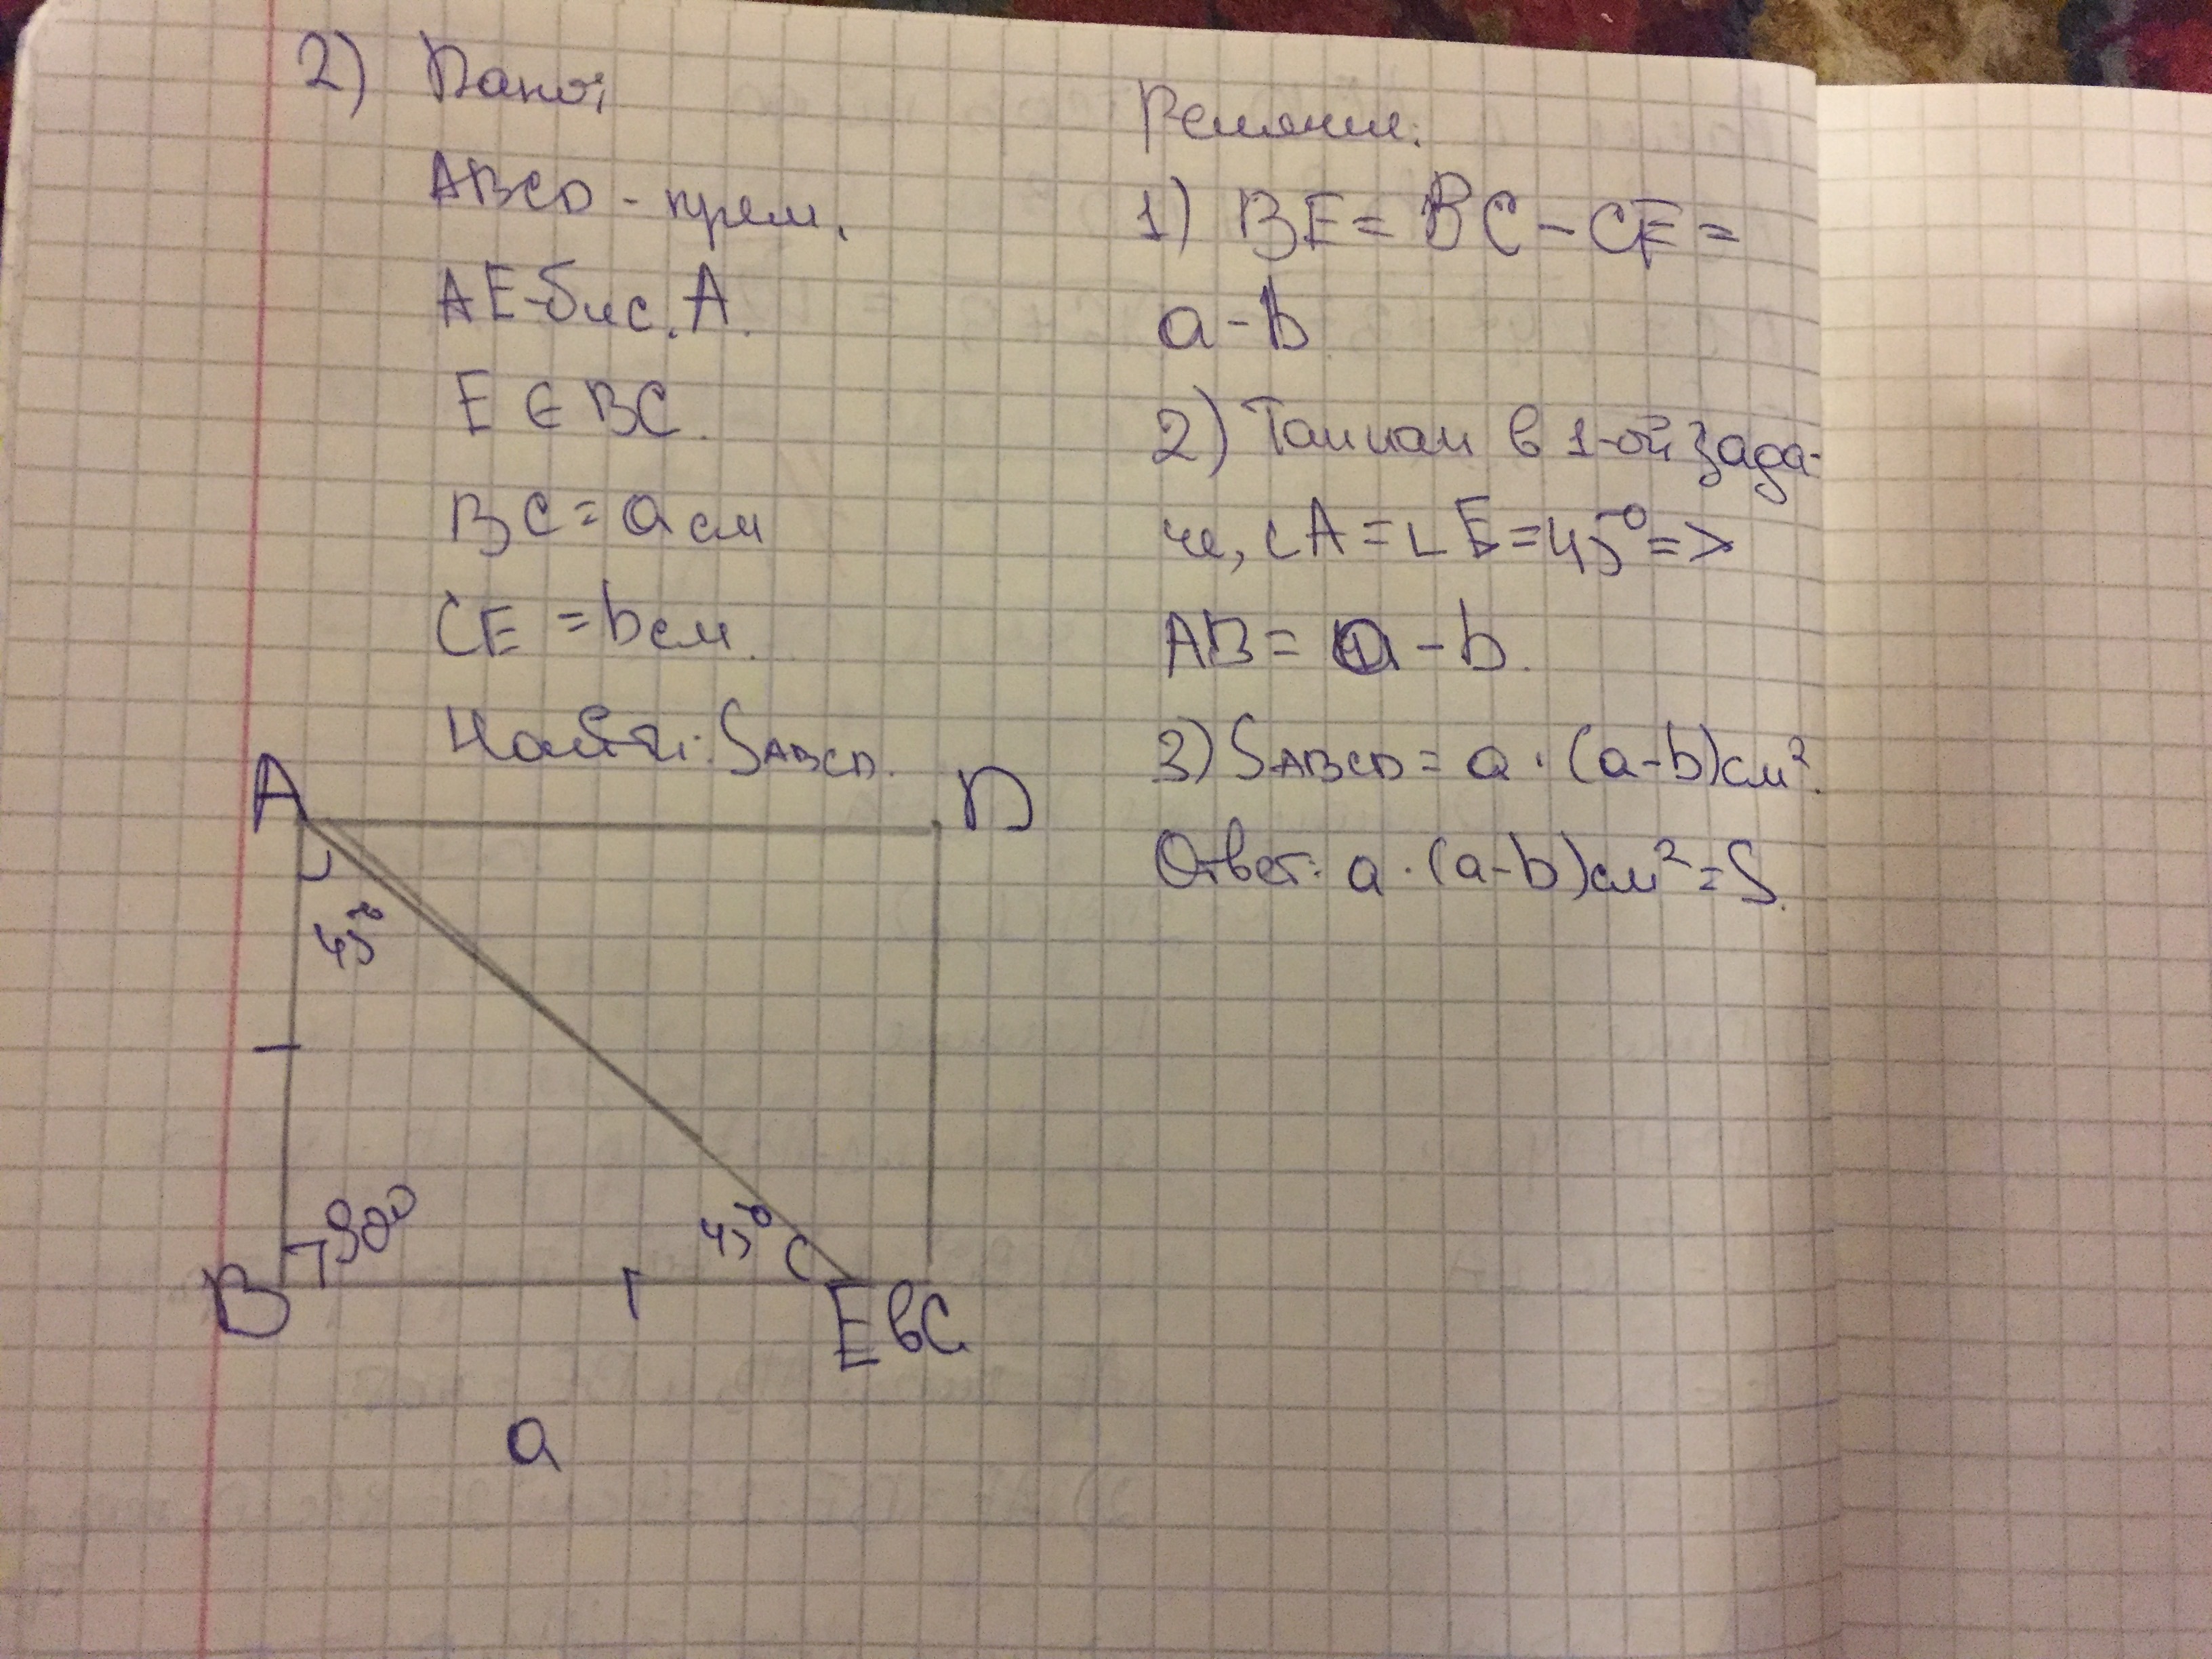 2) Дано:
ABCD - прям.
AE-бис. A.
E ∈ BC.
BC = a см
CE = b см.
Найти: SABCD.
Решение:
1) BE = BC - CE =
a - b
2) Так как в 1-ой зада-
че, ∠A = ∠E = 45° =>
AB = a - b.
3) SABCD = a · (a-b) см².
Ответ: a · (a-b) см² = S.
A
D
45°
90°
45°
B
E b C
a